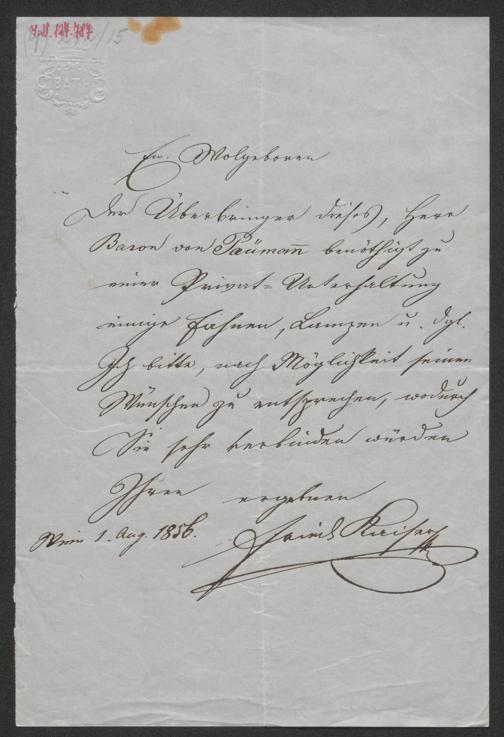 I.N. 127.787
/15
BATH
Ew. Wolgeboren
Der Überbringer dieses, Herr
Baron von Päumann benöthigt zu
einer Privat=Unterhaltung
einige Fahnen, Lampen u. dgl.
Ich bitte, nach Möglichkeit seinen
Wünschen zu entsprechen, wodurch
Sie sehr verbinden würden
Ihren ergebnen
Wien 1. Aug. 1856. Friedr Kaiser